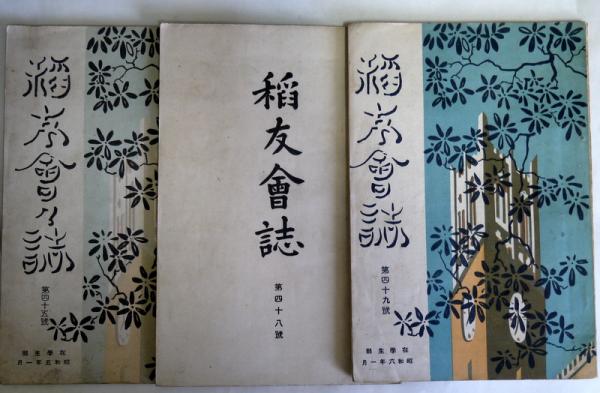 稻友會々誌
第四十五號
在學生號
昭和五年一月
稻友會誌
第四十八號
稻友會誌
第四十九號
在學生號
昭和六年一月